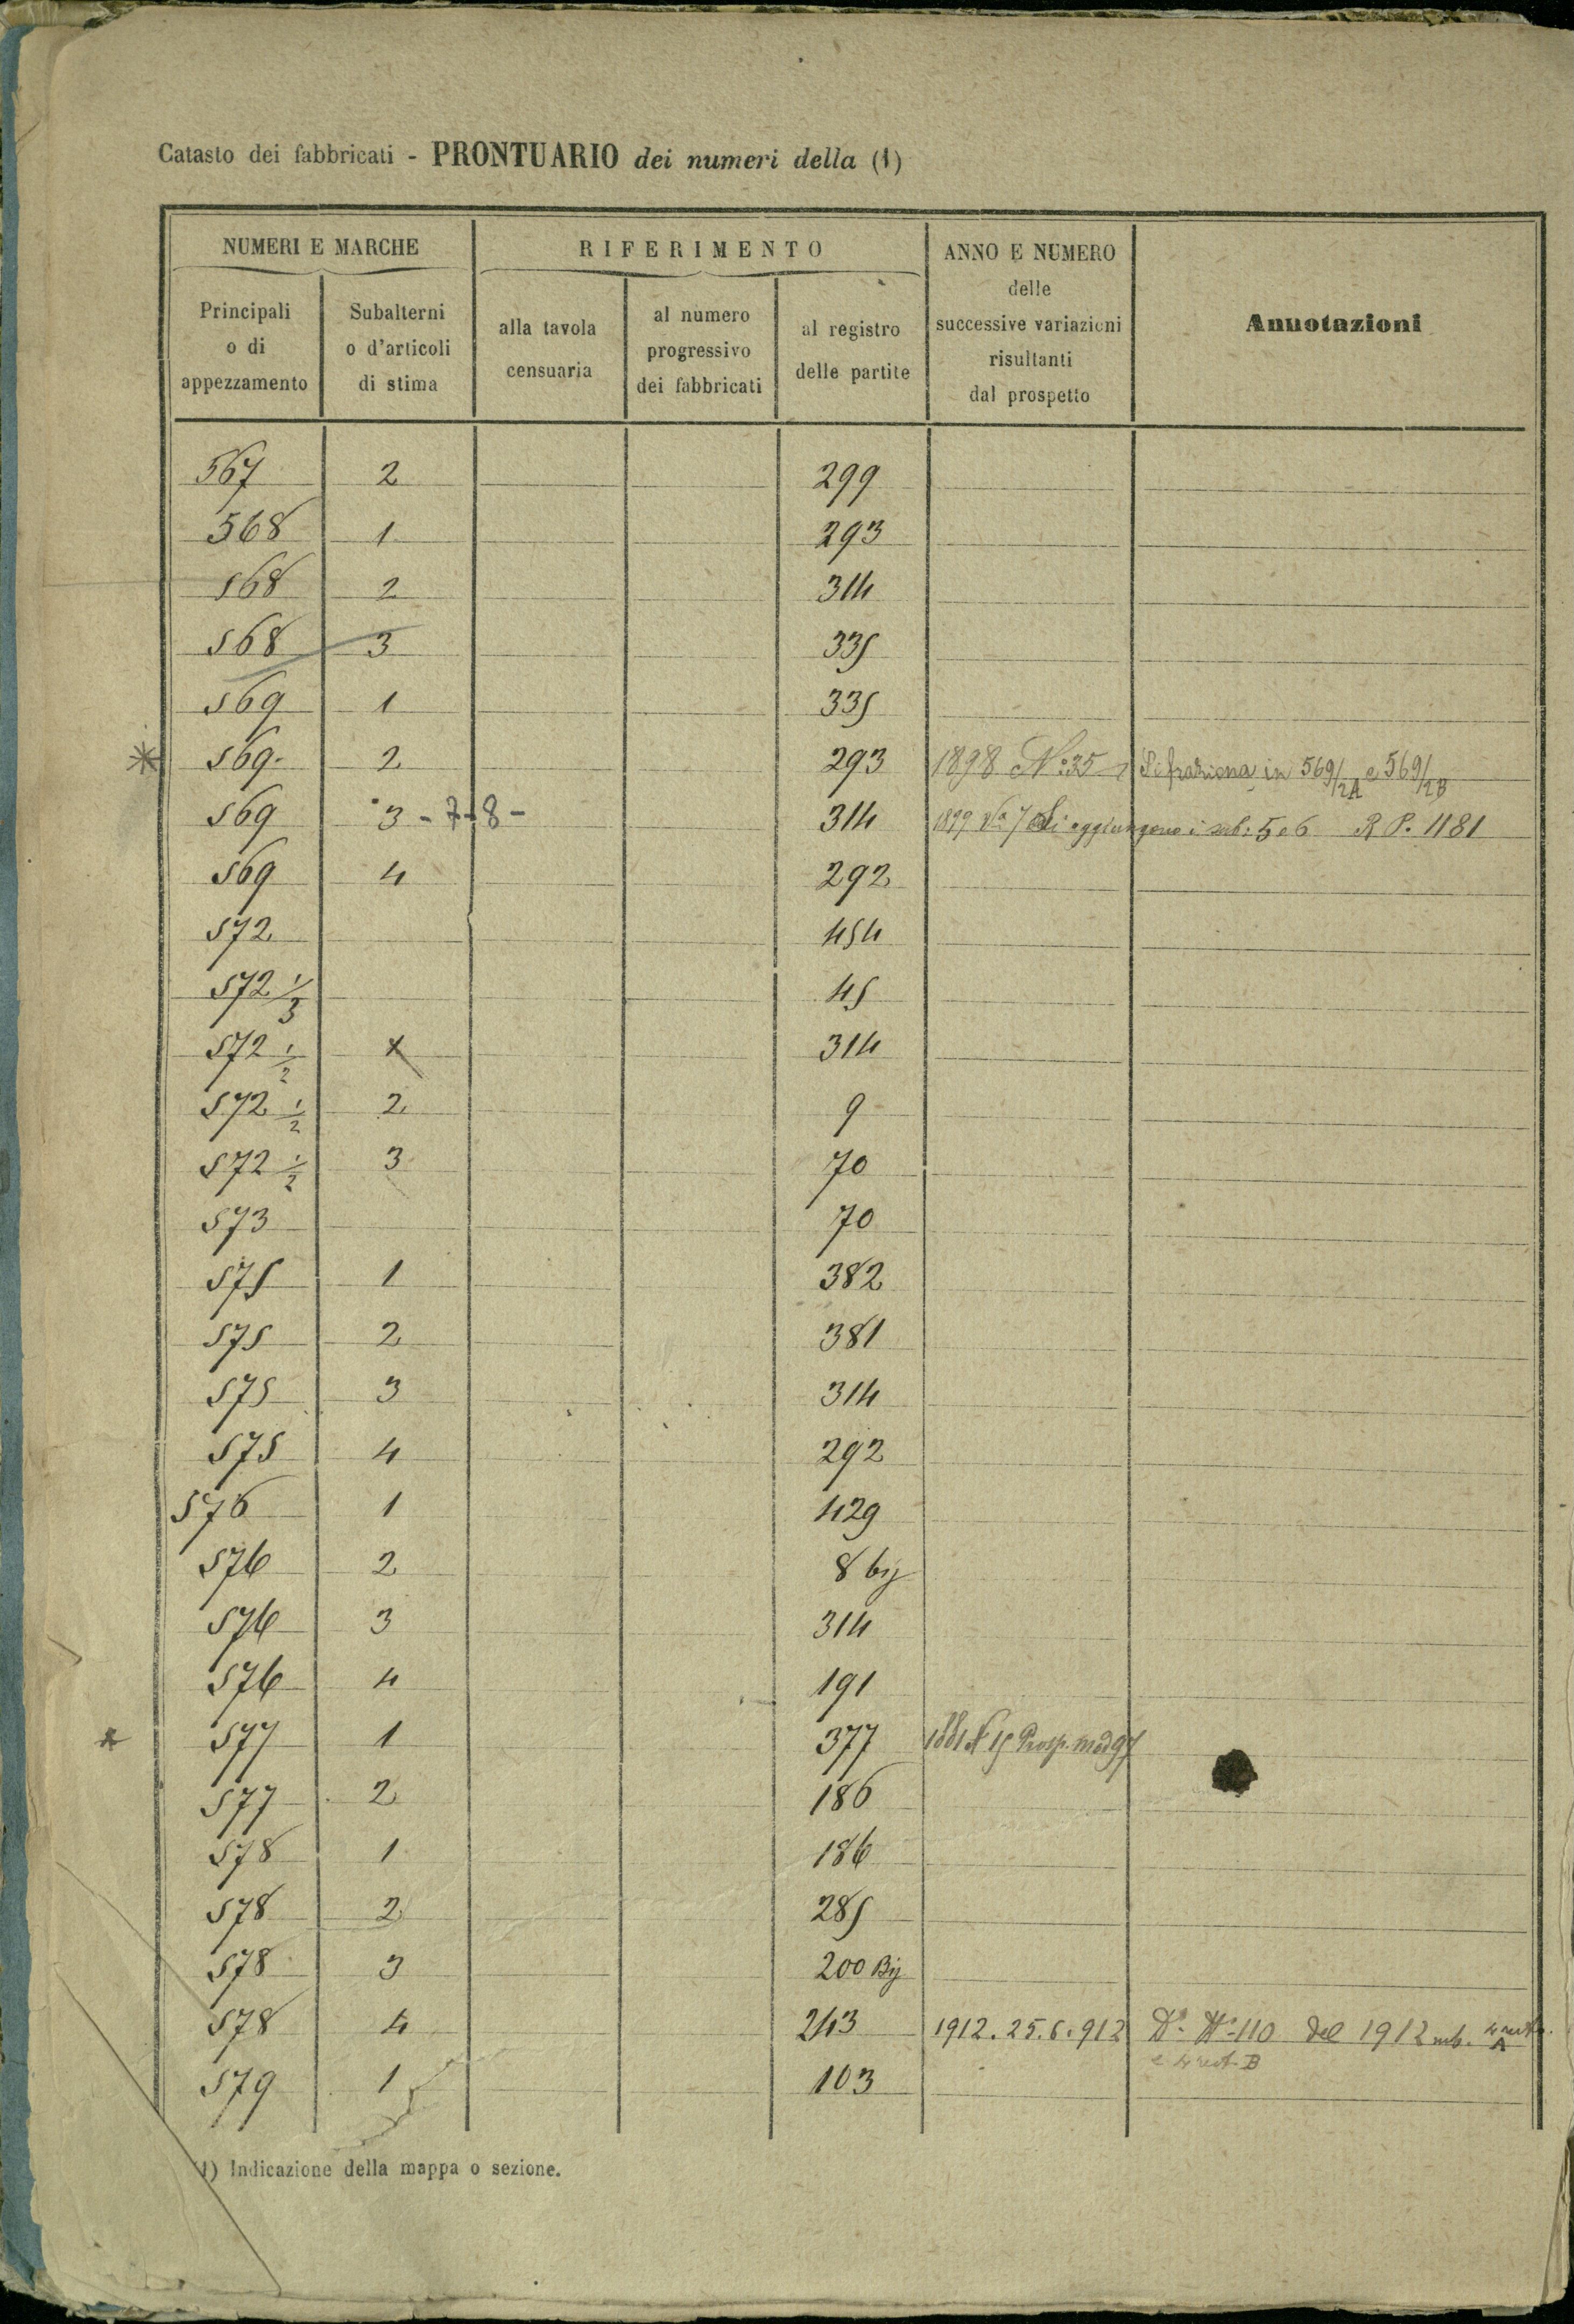 Catasto dei fabbricati - PRONTUARIO dei numeri della (1)
NUMERI E MARCHE
RIFERIMENTO
ANNO E NUMERO
delle
successive variazioni
risultanti
dal prospetto
Annotazioni
Principali
o di
appezzamento
Subalterni
o d'articoli
di stima
alla tavola
censuaria
al numero
progressivo
dei fabbricati
al registro
delle partite
567 2 299
568 1 293
568 2 314
568 3 335
569 1 335
* 569 2 293 1898 N° 35 Si fraziona in 569/2A e 569/2B
569 3 - 7 - 8 - 314 1899 N° 7 Si aggiungono i sub: 5 e 6 R P. 1181
569 4 292
572 454
572 1/3 45
572 1/2 314
572 1/2 2 9
572 1/2 3 70
573 70
575 1 382
575 2 381
575 3 314
575 4 292
576 1 429
576 2 8 bis
576 3 314
576 4 191
* 577 1 377 1881 N 15 Prosp. mod 97
577 2 186
578 1 186
578 2 285
578 3 200 Bis
578 4 243 1912. 25.6.912 N°-110 del 1912 sub. A
e B
579 1 103
(1) Indicazione della mappa o sezione.